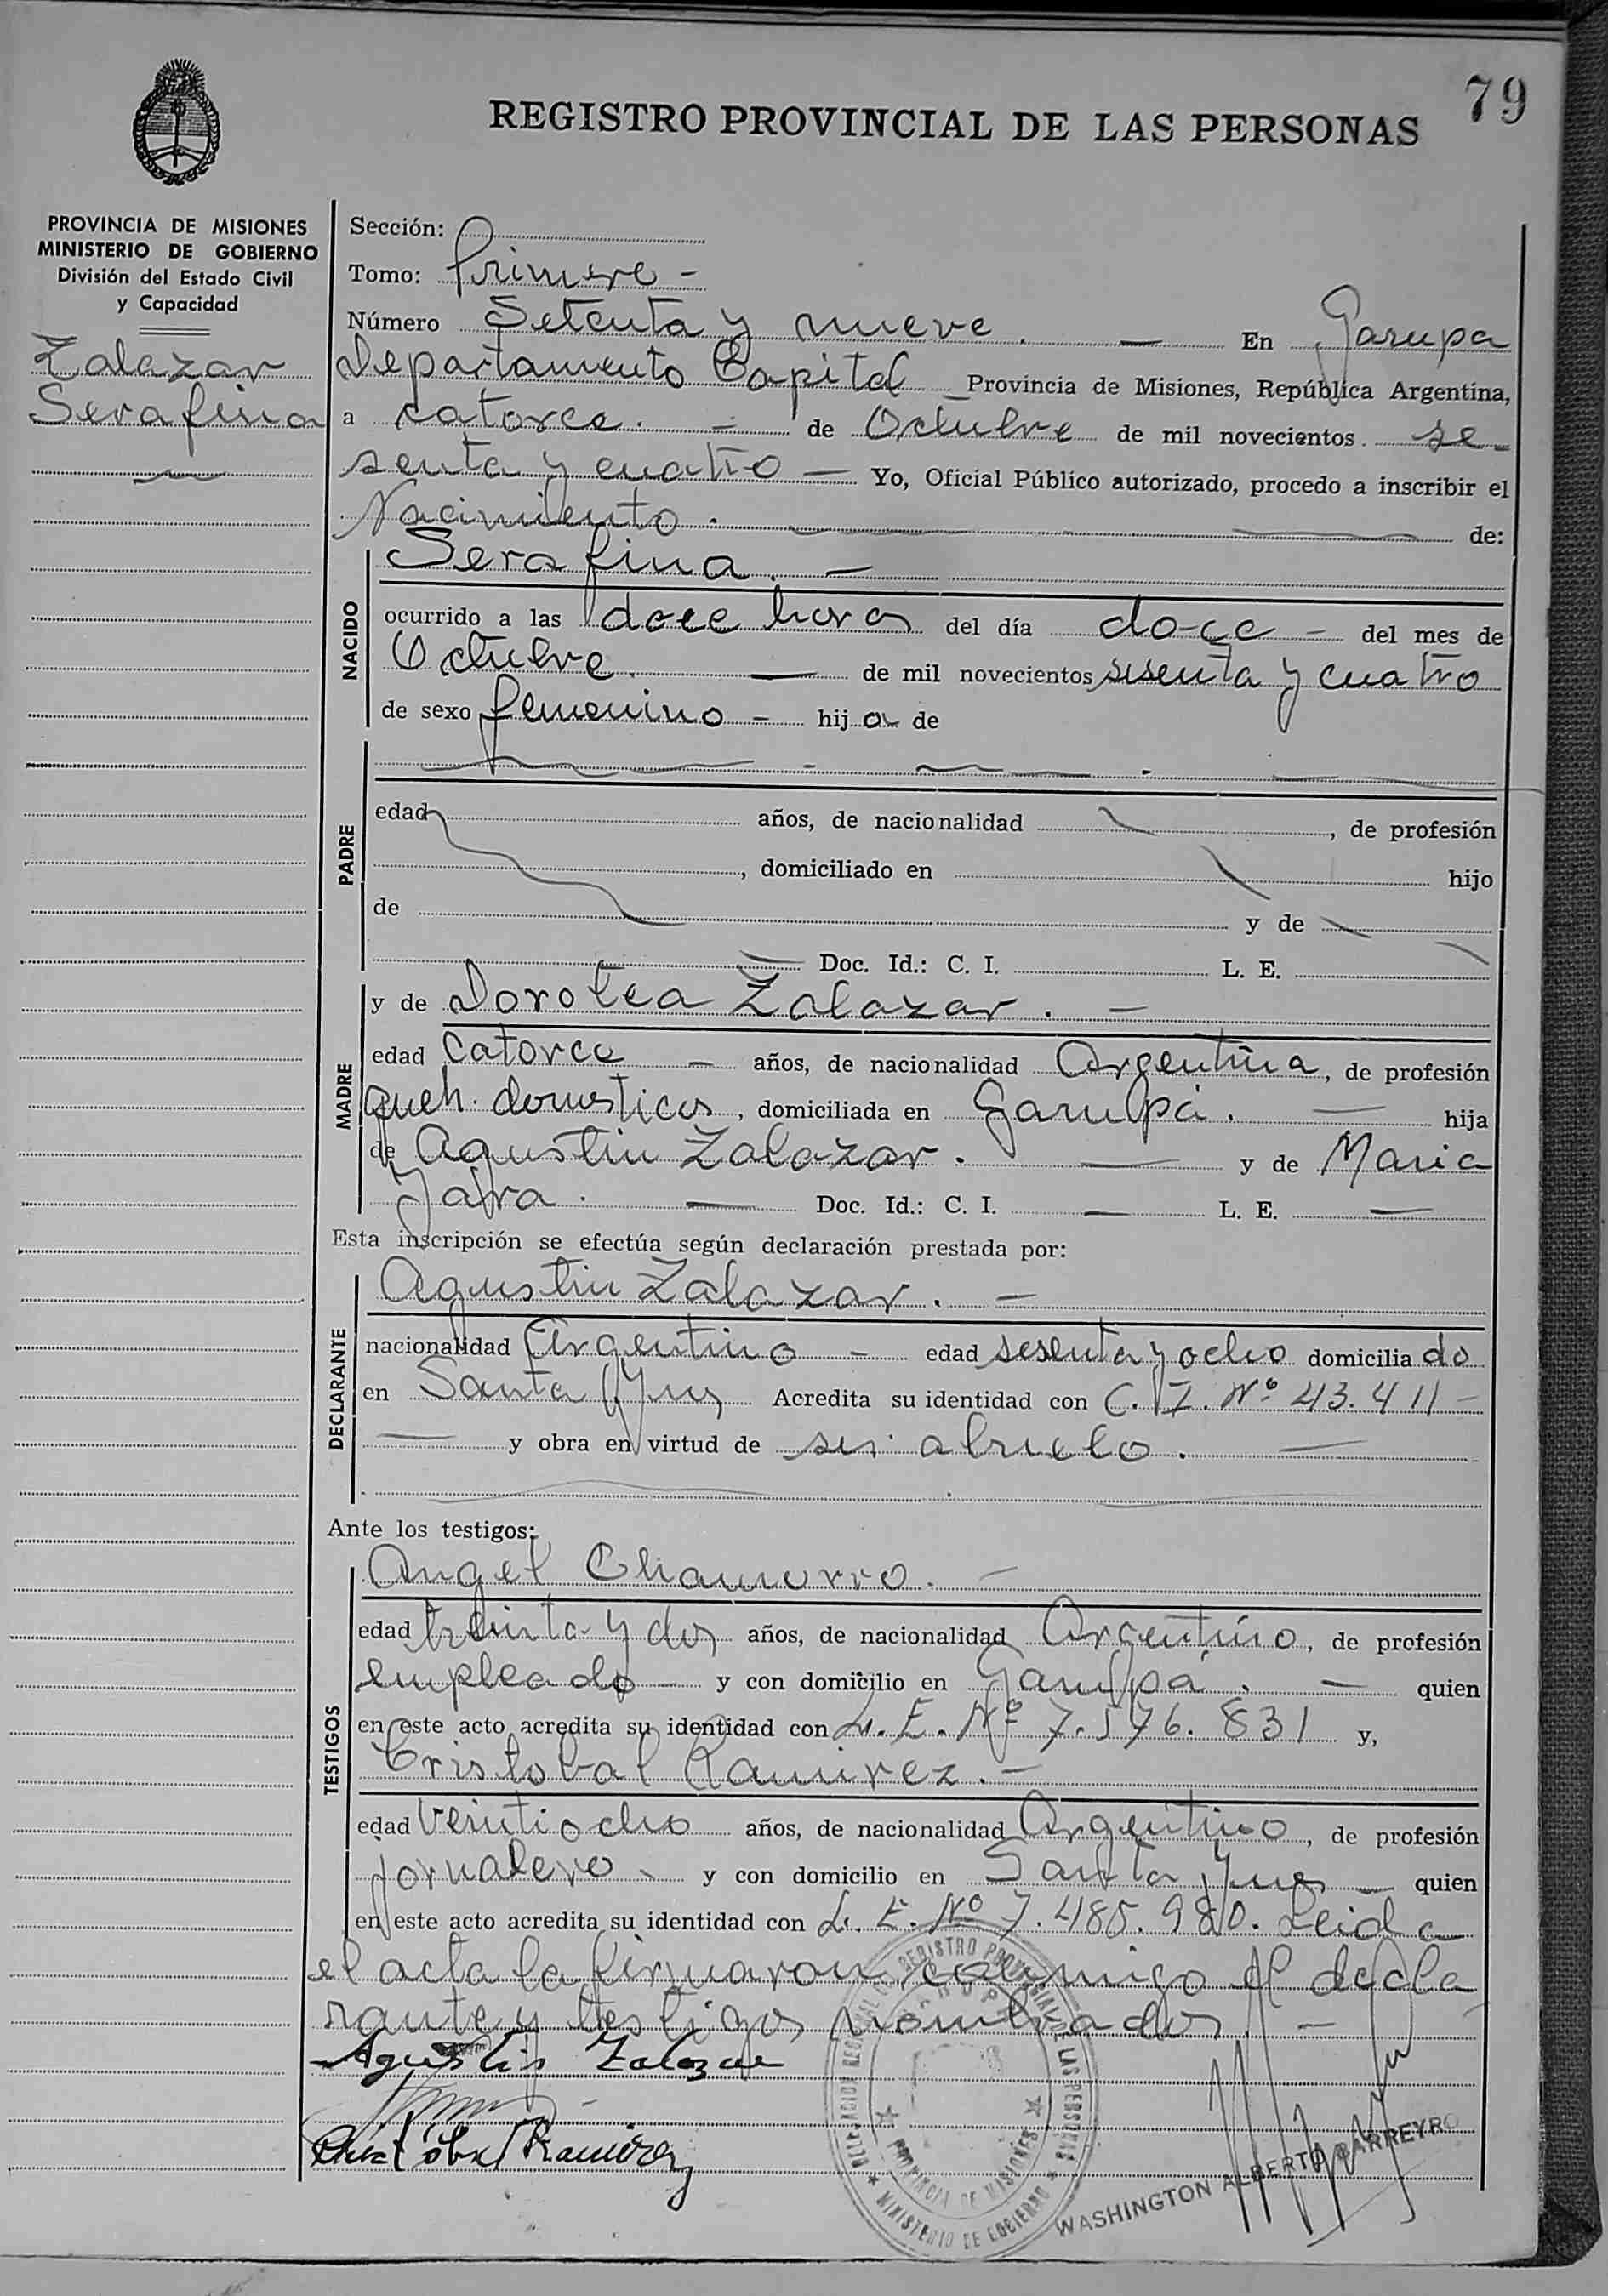 79
REGISTRO PROVINCIAL DE LAS PERSONAS
PROVINCIA DE MISIONES
MINISTERIO DE GOBIERNO
División del Estado Civil
y Capacidad
Zalazar
Serafina
Sección:
Tomo: Primero -
Número Setenta y nueve. — En Garupa
Departamento Capital Provincia de Misiones, República Argentina,
a catorce. - de Octubre de mil novecientos se-
senta y cuatro — Yo, Oficial Público autorizado, procedo a inscribir el
Nacimiento. — de:
NACIDO
Serafina. —
ocurrido a las doce horas del día doce - del mes de
Octubre. — de mil novecientos sesenta y cuatro
de sexo femenino - hija de
PADRE
edad años, de nacionalidad , de profesión
, domiciliado en hijo
de y de
Doc. Id.: C. I. L. E.
MADRE
y de Dorotea Zalazar. —
edad Catorce — años, de nacionalidad Argentina, de profesión
queh. domesticos, domiciliada en Garupá. — hija
de Agustin Zalazar. — y de Maria
Jara. — Doc. Id.: C. I. — L. E. —
Esta inscripción se efectúa según declaración prestada por:
DECLARANTE
Agustin Zalazar. —
nacionalidad Argentino — edad sesenta y ocho domiciliado
en Santa Ynes Acredita su identidad con C. I. Nº 43.411 -
— y obra en virtud de ser abuelo. —
Ante los testigos:
TESTIGOS
Angel Chamorro. —
edad treinta y dos años, de nacionalidad Argentino, de profesión
empleado — y con domicilio en Garupá. — quien
en este acto acredita su identidad con L. E. Nº 7.576.831 y,
Cristobal Ramirez. —
edad Veintiocho años, de nacionalidad Argentino, de profesión
jornalero - y con domicilio en Santa Ynes — quien
en este acto acredita su identidad con L. E. Nº 7.485.980. Leida
el acta la firmaron conmigo el decla
rante y testigos nombrados. —
Agustin Zalazar
Cristobal Ramirez
REGISTRO PROVINCIAL DE LAS PERSONAS
PROVINCIA DE MISIONES
MINISTERIO DE GOBIERNO
WASHINGTON ALBERTO BARREYRO